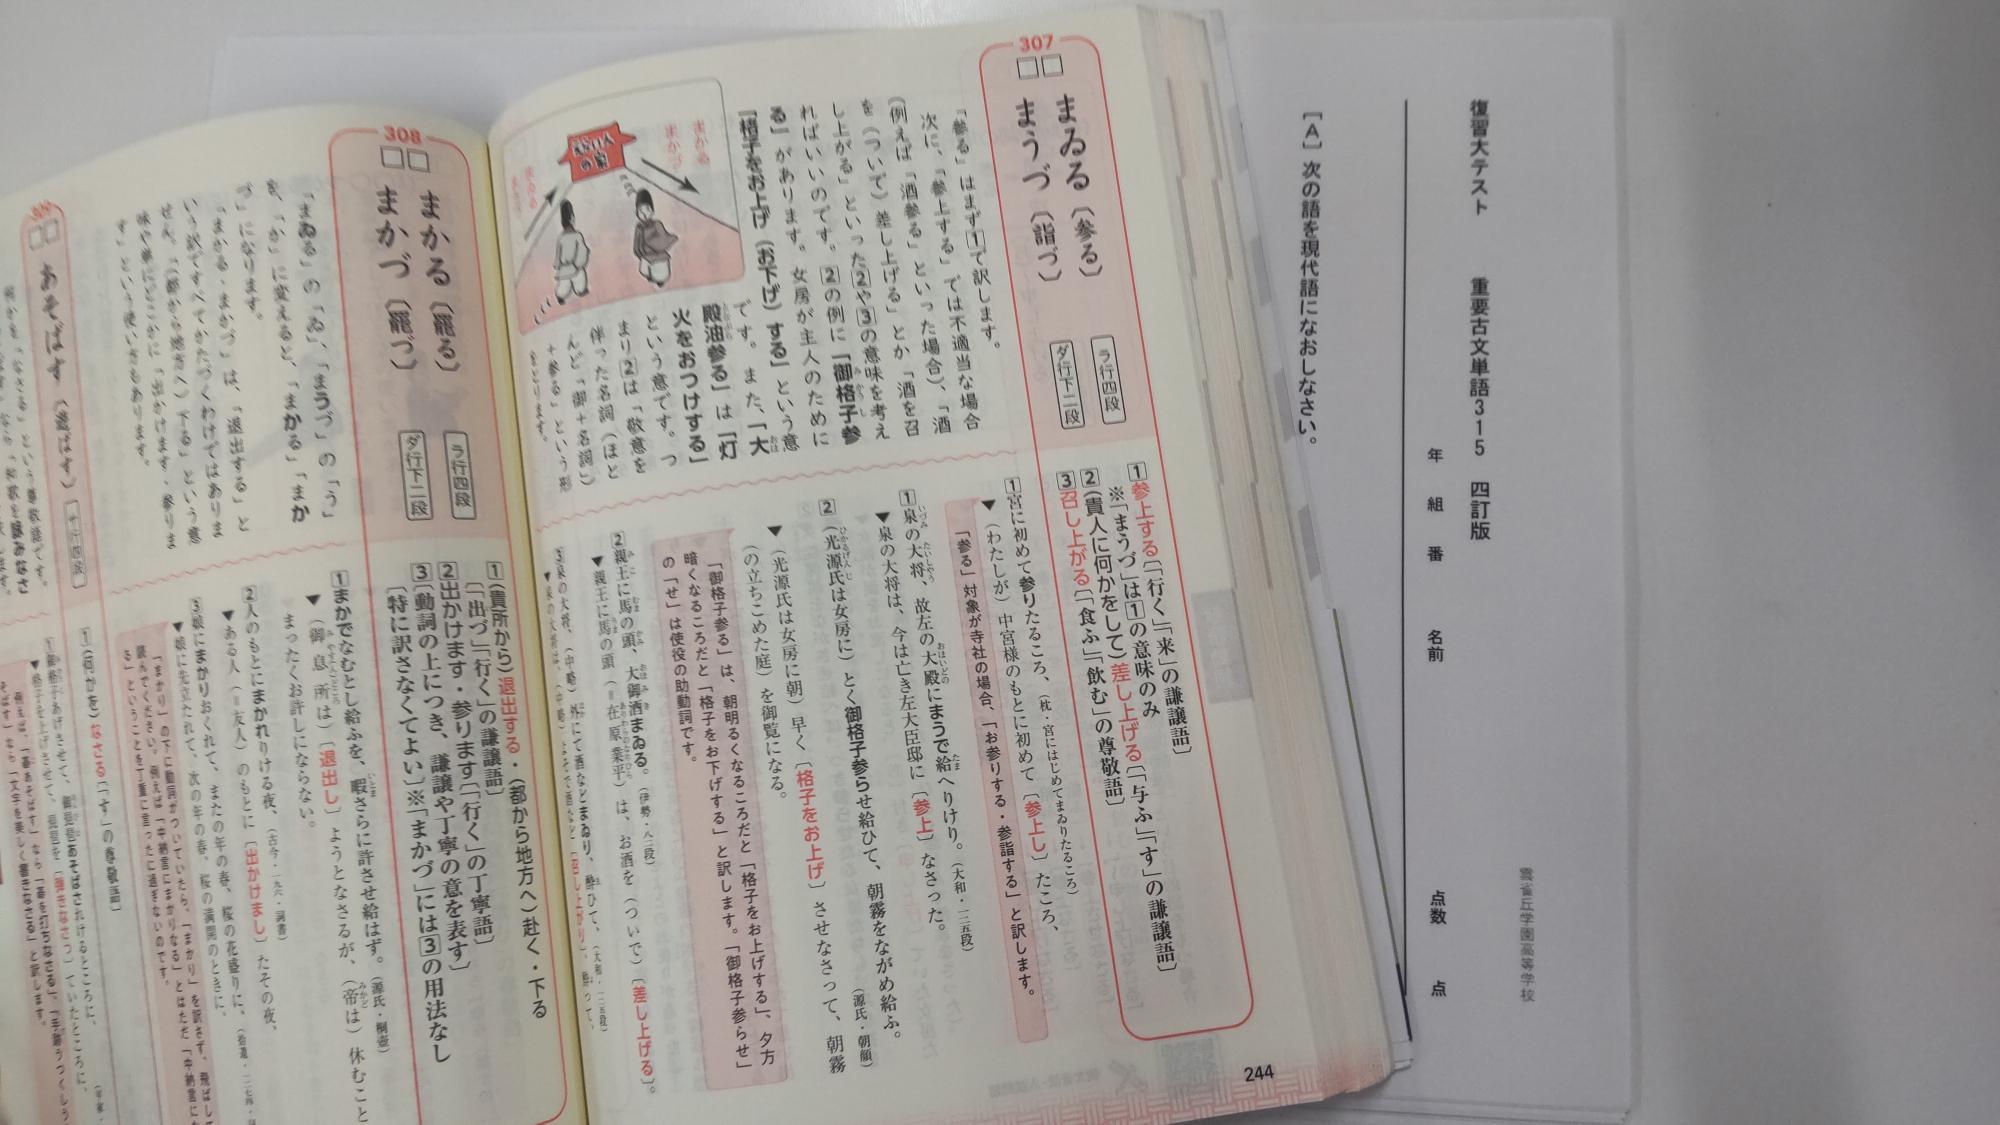 復習大テスト　重要古文単語315　四訂版
雲雀丘学園高等学校
年　組　番　名前　点数　点
［A］次の語を現代語になおしなさい。
307
まゐる〔参る〕
まうづ〔詣づ〕
ラ行四段
ダ行下二段
1参上する〔「行く」「来」の謙譲語〕
※「まうづ」は1の意味のみ
2(貴人に何かをして)差し上げる〔「与ふ」「す」の謙譲語〕
3召し上がる〔「食ふ」「飲む」の尊敬語〕
「参る」はまず1で訳します。
次に、「参上する」では不適当な場合
(例えば「酒参る」といった場合)、「酒
を(ついで)差し上げる」とか「酒を召
し上がる」といった2や3の意味を考え
ればいいのです。2の例に「御格子参
る」があります。女房が主人のために
「格子をお上げ(お下げ)する」という意
です。また、「大
殿油参る」は「灯
火をおつけする」
という意です。つ
まり2は「敬意を
伴った名詞(ほと
んど「御+名詞」)
+参る」という形
をとります。
えらい人の家
まかる
まかづ
まゐる
1宮に初めて参りたるころ、(枕・宮にはじめてまゐりたるころ)
▼(わたしが)中宮様のもとに初めて〔参上し〕たころ、
「参る」対象が寺社の場合、「お参りする・参詣する」と訳します。
1泉の大将、故左の大殿にまうで給へりけり。(大和・一二五段)
▼泉の大将は、今は亡き左大臣邸に〔参上〕なさった。
2(光源氏は女房に)とく御格子参らせ給ひて、朝霧をながめ給ふ。(源氏・朝顔)
▼(光源氏は女房に朝)早く〔格子をお上げ〕させなさって、朝霧
(の立ちこめた庭)を御覧になる。
「御格子参る」は、朝明るくなるころだと「格子をお上げする」、夕方
暗くなるころだと「格子をお下げする」と訳します。「御格子参らせ」
の「せ」は使役の助動詞です。
2親王に馬の頭、大御酒まゐる。(伊勢・八二段)
▼親王に馬の頭(=在原業平)は、お酒を(ついで)〔差し上げる〕。
3泉の大将、(中略)外にて酒などまゐり、酔ひて、(大和・一二五段)
244
308
まかる〔罷る〕
まかづ〔罷づ〕
ラ行四段
ダ行下二段
1(貴所から)退出する・(都から地方へ)赴く・下る
〔「出づ」「行く」の謙譲語〕
2出かけます・参ります〔「行く」の丁寧語〕
3〔動詞の上につき、謙譲や丁寧の意を表す〕
〔特に訳さなくてよい〕※「まかづ」には3の用法なし
「まゐる」の「ゐ」、「まうづ」の「う」
を、「か」に変えると、「まかる」「まか
づ」になります。
「まかる・まかづ」は、「退出する」と
いう訳ですべてかたづくわけではありま
せん。「(都から地方へ)下る」という意
味や単にどこかに「出かけます・参りま
す」という使い方もあります。
1まかでなむとし給ふを、暇さらに許させ給はず。(源氏・桐壺)
▼(御息所は)〔退出し〕ようとなさるが、(帝は)休むこと
まったくお許しにならない。
2人のもとにまかれりける夜、
▼ある人(=友人)のもとに〔出かけまし〕たその夜、
3娘にまかりおくれて、またの年の春、桜の花盛りに、
▼娘に先立たれて、次の年の春、桜の満開のときに、
「まかり」の下に動詞がついていたら、「まかり」を訳さず、飛ばして
読んでください。例えば「中納言にまかりなる」とはただ「中納言にな
る」ということを丁重に言ったに過ぎないのです。
309
あそばす〔遊ばす〕
サ行四段
1(何かを)なさる〔「す」の尊敬語〕